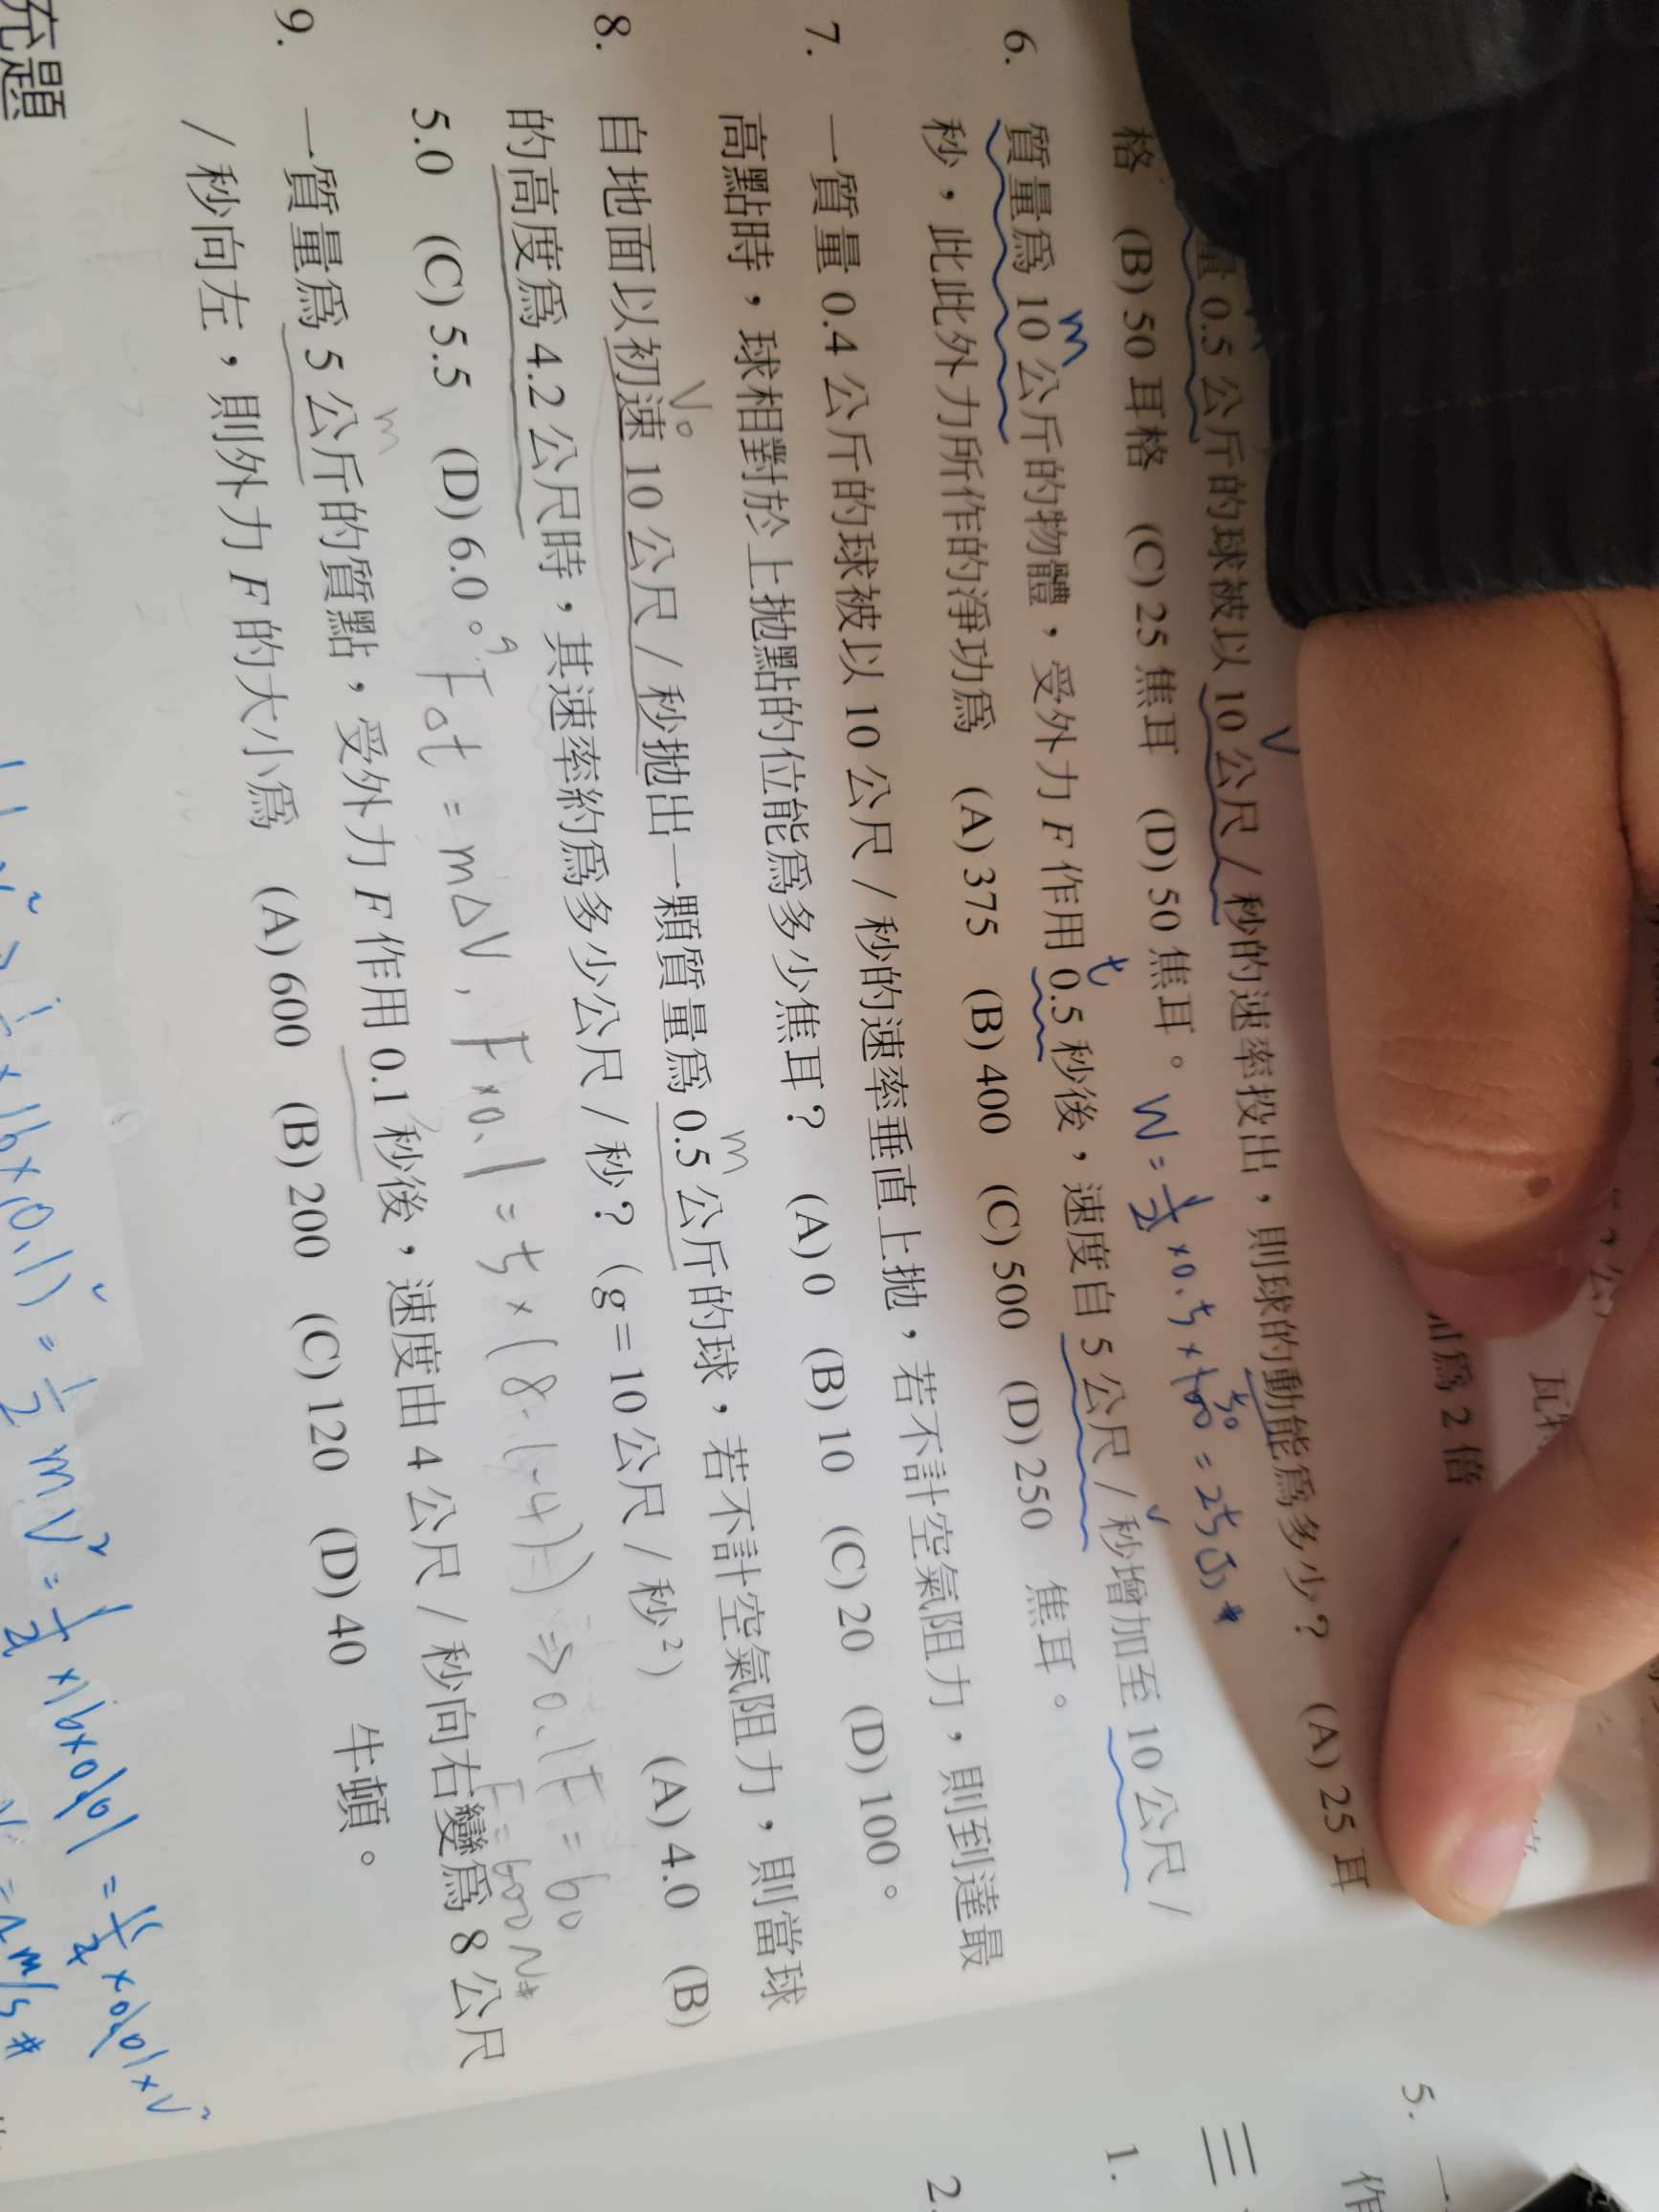 量 0.5 公斤的球被以 10 公尺 / 秒的速率投出，則球的動能爲多少？ (A) 25 耳
格 (B) 50 耳格 (C) 25 焦耳 (D) 50 焦耳。 W = 1/2 × 0.5 × 100 = 25 J #
6. 質量爲 10 公斤的物體，受外力 F 作用 0.5 秒後，速度自 5 公尺 / 秒增加至 10 公尺 /
秒，此此外力所作的淨功爲 (A) 375 (B) 400 (C) 500 (D) 250 焦耳。
7. 一質量 0.4 公斤的球被以 10 公尺 / 秒的速率垂直上拋，若不計空氣阻力，則到達最
高點時，球相對於上拋點的位能爲多少焦耳？ (A) 0 (B) 10 (C) 20 (D) 100。
8. 自地面以初速 10 公尺 / 秒拋出一顆質量爲 0.5 公斤的球，若不計空氣阻力，則當球
的高度爲 4.2 公尺時，其速率約爲多少公尺 / 秒？（g = 10 公尺 / 秒²） (A) 4.0 (B)
5.0 (C) 5.5 (D) 6.0。
9. F△t = m△V , F×0.1 = 5×(8-(-4)) ⇒ 0.1F = 60
F = 600 N#
9. 一質量爲 5 公斤的質點，受外力 F 作用 0.1 秒後，速度由 4 公尺 / 秒向右變爲 8 公尺
/ 秒向左，則外力 F 的大小爲 (A) 600 (B) 200 (C) 120 (D) 40 牛頓。
充題
m
V
t
V₀
m
m
爲 2 倍
5.
作
三
1.
2.